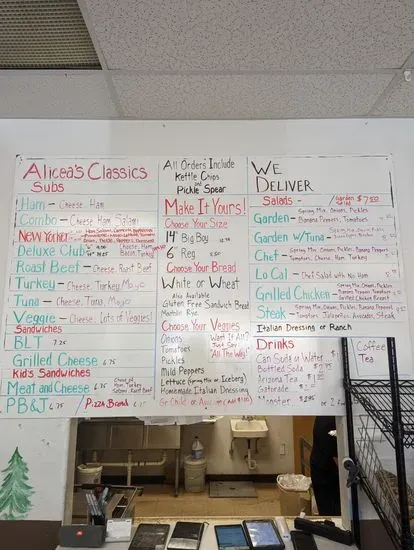 Alicea's Classics
Subs
Ham - Cheese, Ham
Combo - Cheese, Ham, Salami
New Yorker - Ham, Salami,
Deluxe Club
Bacon, Turkey
Roast Beef - Cheese, Roast Beef
Turkey - Cheese, Turkey, Mayo
Tuna - Cheese, Tuna, Mayo
Veggie - Cheese, Lots of Veggies!
Sandwiches
BLT 7.25
Grilled Cheese 6.75
Kid's Sandwiches
Meat and Cheese 6.75
Ham, Turkey
Salami, Roast Beef
PB&J 6.75 / Pizza Bread
All Orders Include
Kettle Chips
and
Pickle Spear
Make It Yours!
Choose Your Size
14" Big Boy
6" Reg
Choose Your Bread
White or Wheat
Also Available
Gluten Free Sandwich Bread
Marble Rye
Choose Your Veggies
Onions
Tomatoes
Pickles
Want It All?
Just Say
"All The Way!"
Mild Peppers
Lettuce (Spring Mix or Iceberg)
Homemade Italian Dressing
We
Deliver
Salads - Garden $7.50
Garden - Spring Mix, Onions, Pickles
Banana Peppers, Tomatoes
Garden w/Tuna -
Chef - Spring Mix, Onions, Pickles, Banana Peppers
Tomatoes, Cheese, Ham, Turkey
Lo Cal - Chef Salad with No Ham
Grilled Chicken - Spring Mix, Onions, Pickles
Banana Peppers, Tomatoes
Grilled Chicken Breast
Steak - Spring Mix, Onion, Pickles, Banana Peppers
Tomatoes, Jalapeños, Avocado, Steak
Italian Dressing or Ranch
Drinks
Can Soda or Water
Bottled Soda
Arizona Tea
Gatorade
Monster
Coffee
Tea